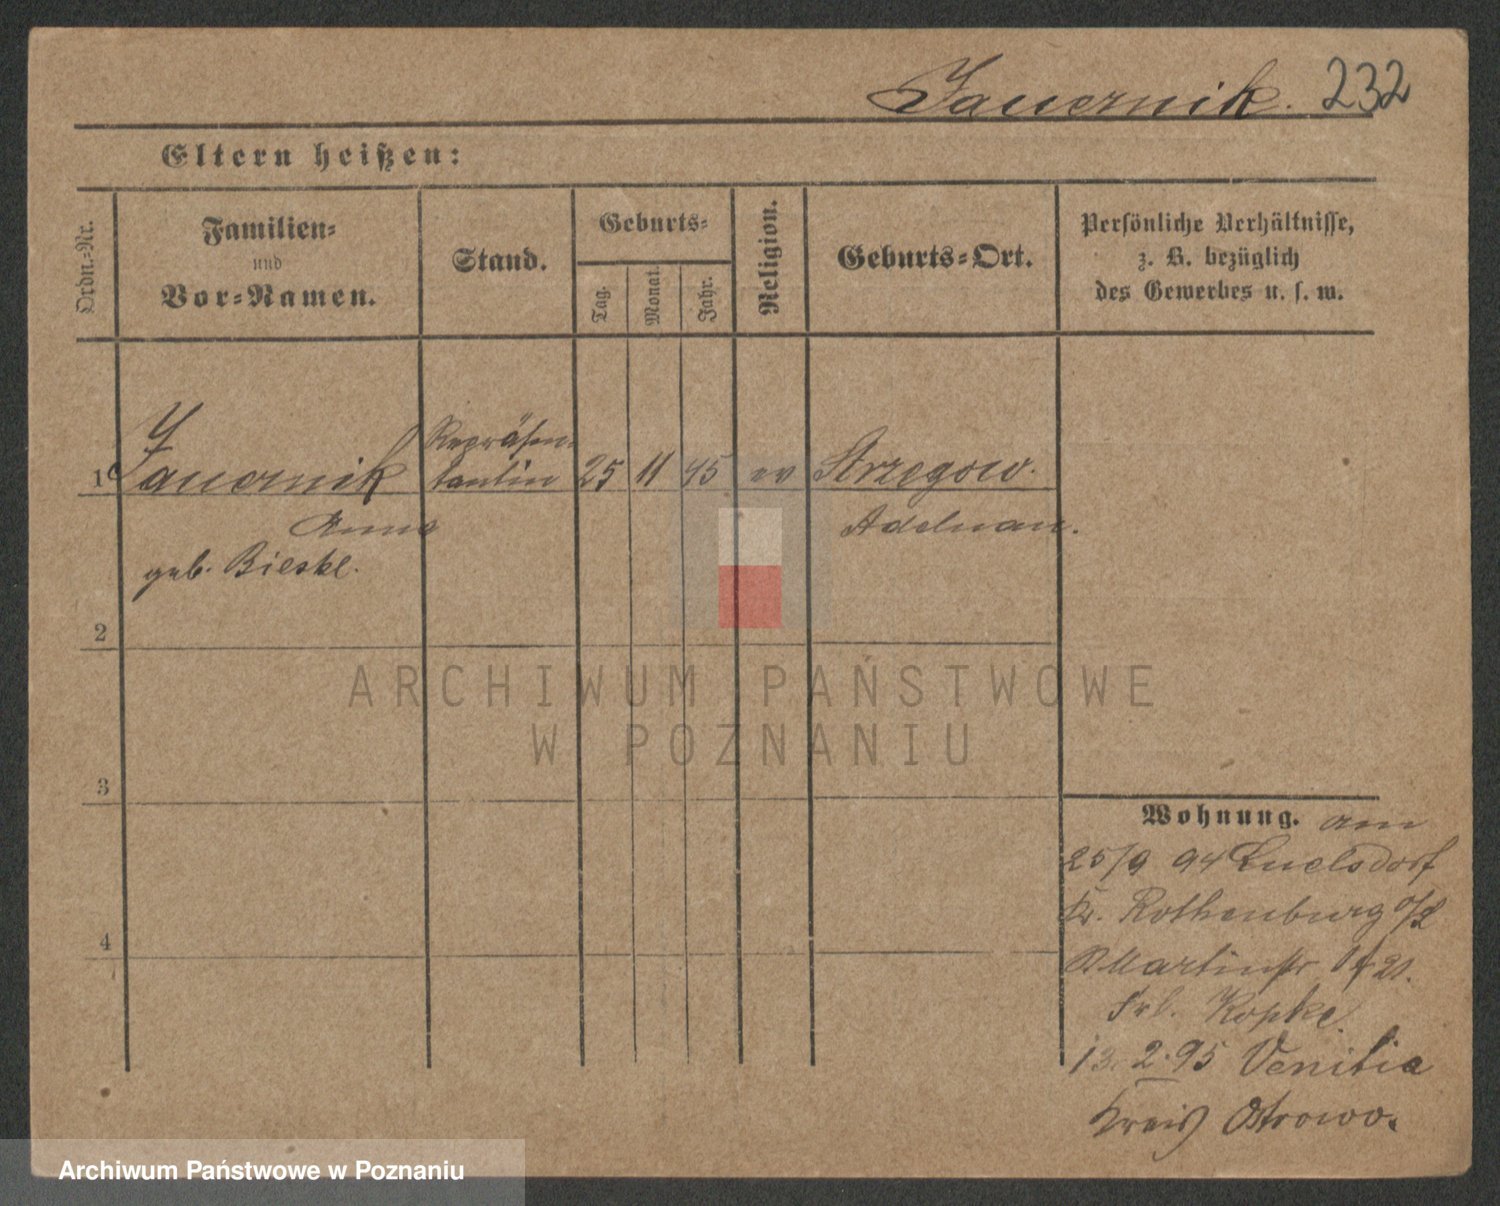 Jauernik. 232
Eltern heißen:
Ordn.-Nr.
Familien-
und
Vor-Namen.
Stand.
Geburts-
Tag.
Monat.
Jahr.
Religion.
Geburts-Ort.
Persönliche Verhältnisse,
z. B. bezüglich
des Gewerbes u. s. w.
1 Jauernik Repräsen-
tantin 25 11 45 ev Strzegow.
Anna Adelnau.
geb. Bieske.
2
3
4
Wohnung. am
25/9 94
Kr. Rothenburg O/L
Martinstr
Frl. Kopke.
13. 2. 95 Venitia
Kreis Ostrowo.
ARCHIWUM PAŃSTWOWE
W POZNANIU
Archiwum Państwowe w Poznaniu